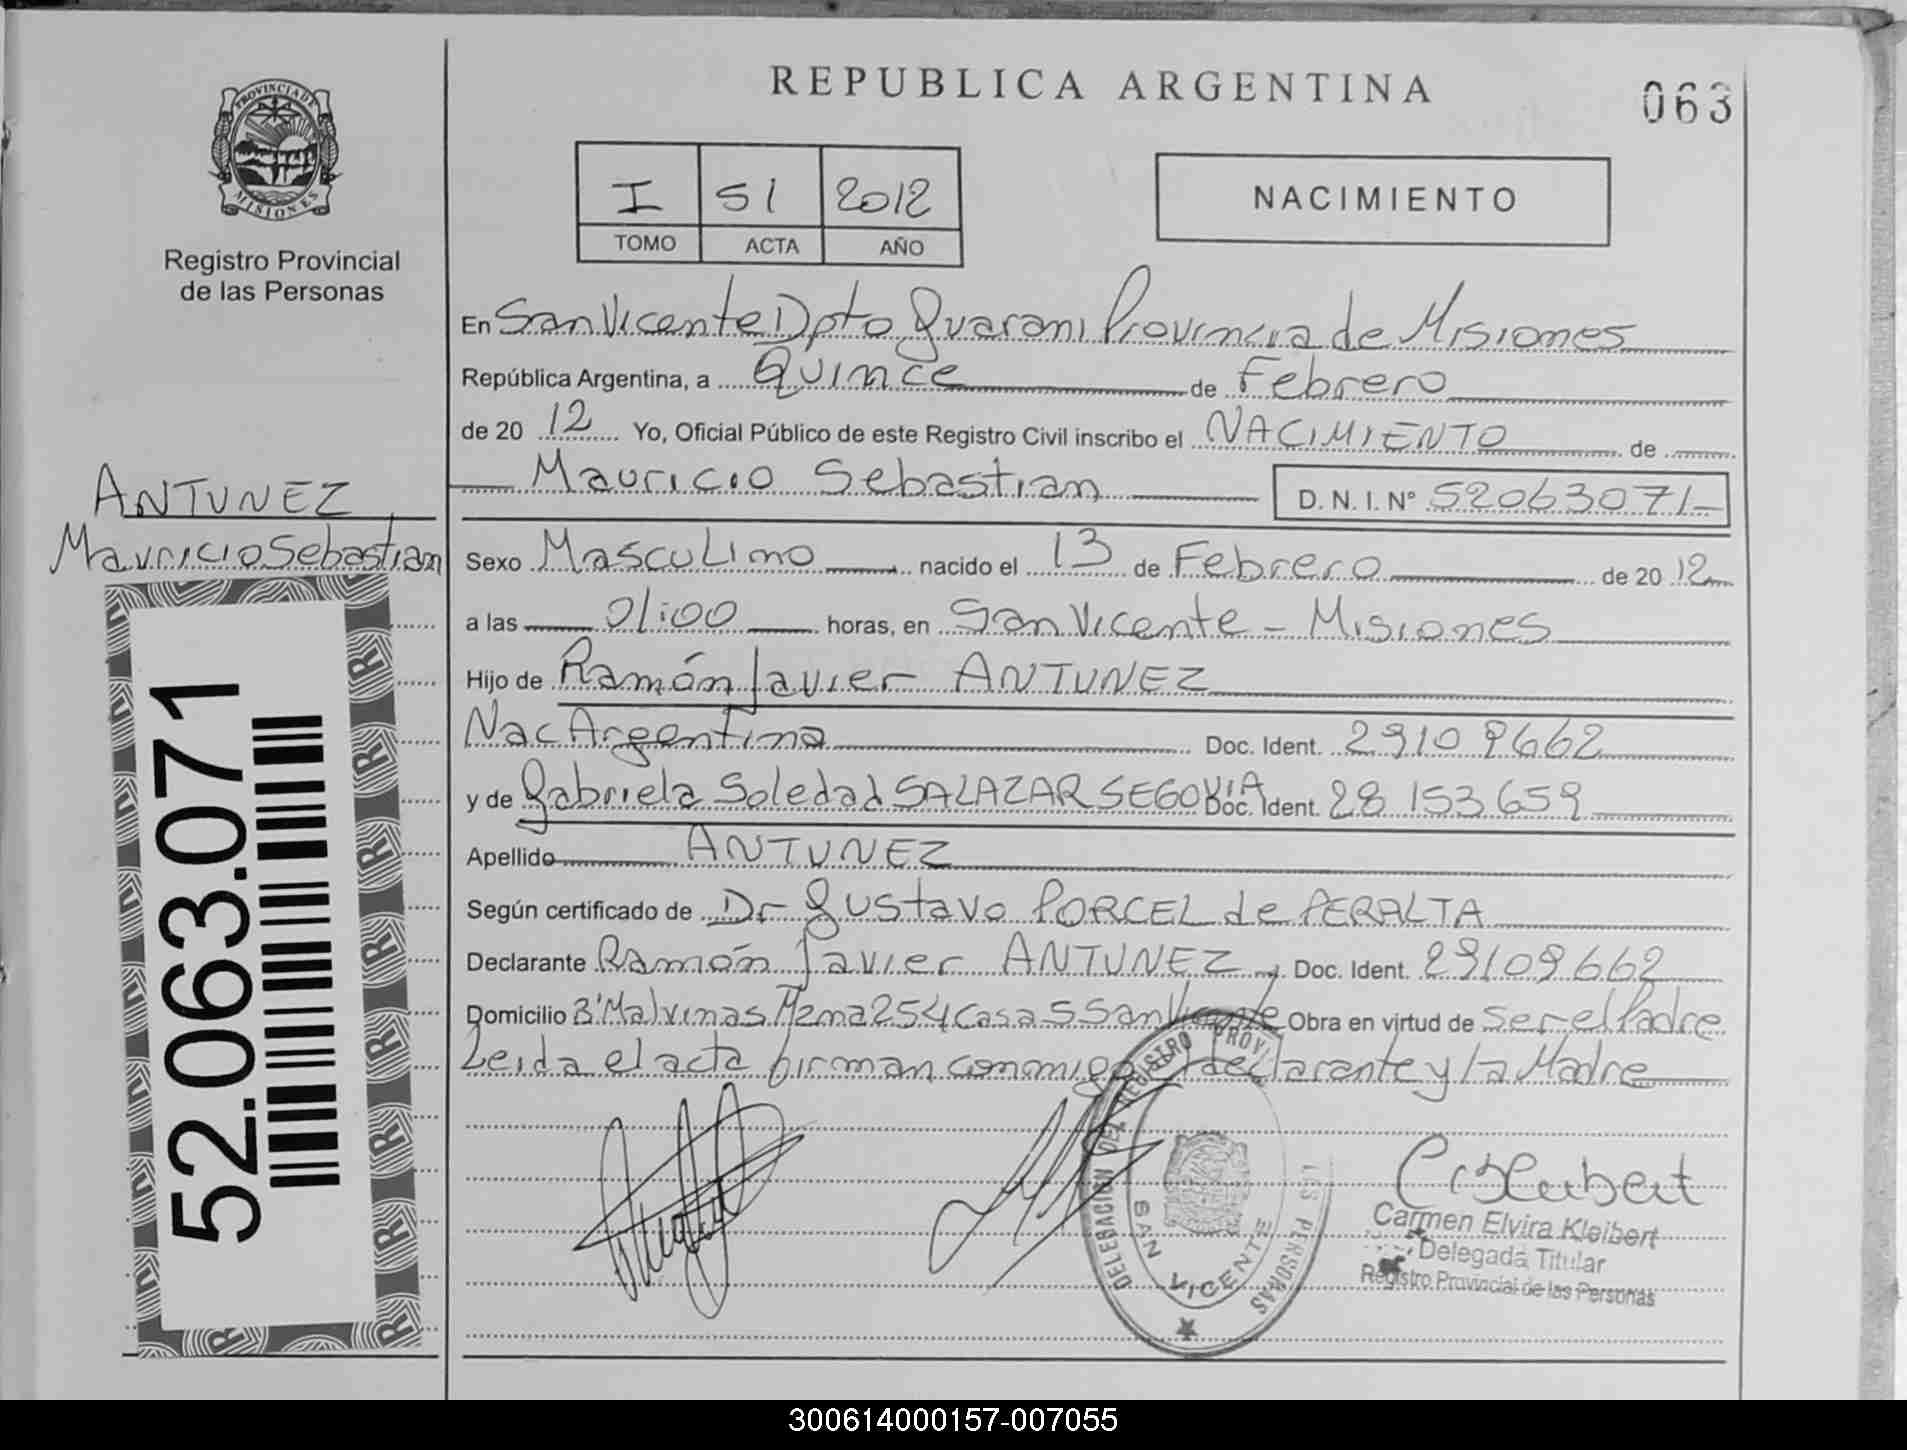 PROVINCIA DE
MISIONES
Registro Provincial
de las Personas
ANTUNEZ
Mauricio Sebastian
52.063.071
REPUBLICA ARGENTINA
063
I 51 2012
TOMO ACTA AÑO
NACIMIENTO
En San Vicente Dpto Guarani Provincia de Misiones
República Argentina, a Quince de Febrero
de 20 12 Yo, Oficial Público de este Registro Civil inscribo el NACIMIENTO de
Mauricio Sebastian D. N. I. Nº 52063071
Sexo Masculino nacido el 13 de Febrero de 20 12
a las 01:00 horas, en San Vicente - Misiones
Hijo de Ramón Javier ANTUNEZ
Nac Argentina Doc. Ident. 29109662
y de Gabriela Soledad SALAZAR SEGOVIA Doc. Ident. 28 153 659
Apellido ANTUNEZ
Según certificado de Dr Gustavo PORCEL de PERALTA
Declarante Ramón Javier ANTUNEZ, Doc. Ident. 29109662
Domicilio Bº Malvinas Mzna 254 Casa 5 San Vicente Obra en virtud de ser el Padre
Leida el acta firman conmigo el declarante y la Madre
DELEGACIÓN DEL REGISTRO PROV. LAS PERSONAS
SAN VICENTE
Carmen Elvira Kleibert
Delegada Titular
Registro Provincial de las Personas
300614000157-007055